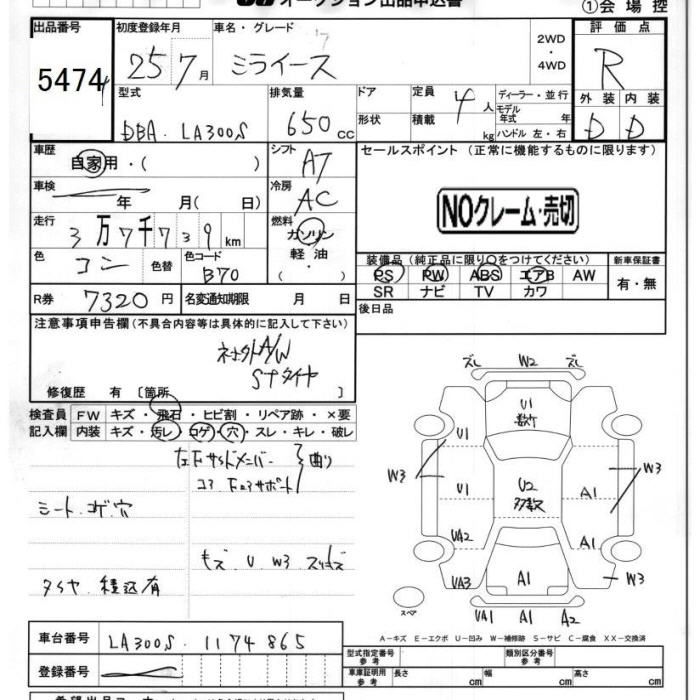 オークション出品申込書
①会場控
出品番号 初度登録年月 車名・グレード 評価点
5474 25年7月 ミライース 2WD・4WD R
型式 排気量 ドア 定員 4人 ディーラー・並行 外装 内装
DBA-LA300S 650cc 形状 積載 kg モデル年式 年 ハンドル 左・右 D D
車歴 自家用・( ) シフト AT セールスポイント(正常に機能するものに限ります)
車検 年 月( 日) 冷房 AC
NOクレーム・売切
走行 3万7千739km 燃料 ガソリン・軽油・( )
色 コン 色替 色コード B70
装備品(純正品に限り○をつけてください) 新車保証書
PS PW ABS エアB AW 有・無
SR ナビ TV カワ
R券 7320円 名変通知期限 月 日 後日品
注意事項申告欄(不具合内容等は具体的に記入して下さい)
A/W
Sナタイヤ
修復歴 有 [箇所 ]
検査員記入欄 FW キズ・飛石・ヒビ割・リペア跡・×要
内装 キズ・汚レ・コゲ・穴・スレ・キレ・破レ
左Fサイドメンバー 曲り
シート コゲ穴
キズ U W3
タイヤ 積込有
ズレ W2 ズレ
U1
U1
W3 W3
U1 U2 A1
多数
UA2 A1
UA3 A1 W3
スペア UA1 A1 A2
A−キズ E−エクボ U−凹み W−補修跡 S−サビ C−腐食 XX−交換済
車台番号 LA300S-1174865
型式指定番号 参考 類別区分番号 参考
登録番号 車庫証明用 参考 長さ cm 幅 cm 高さ cm